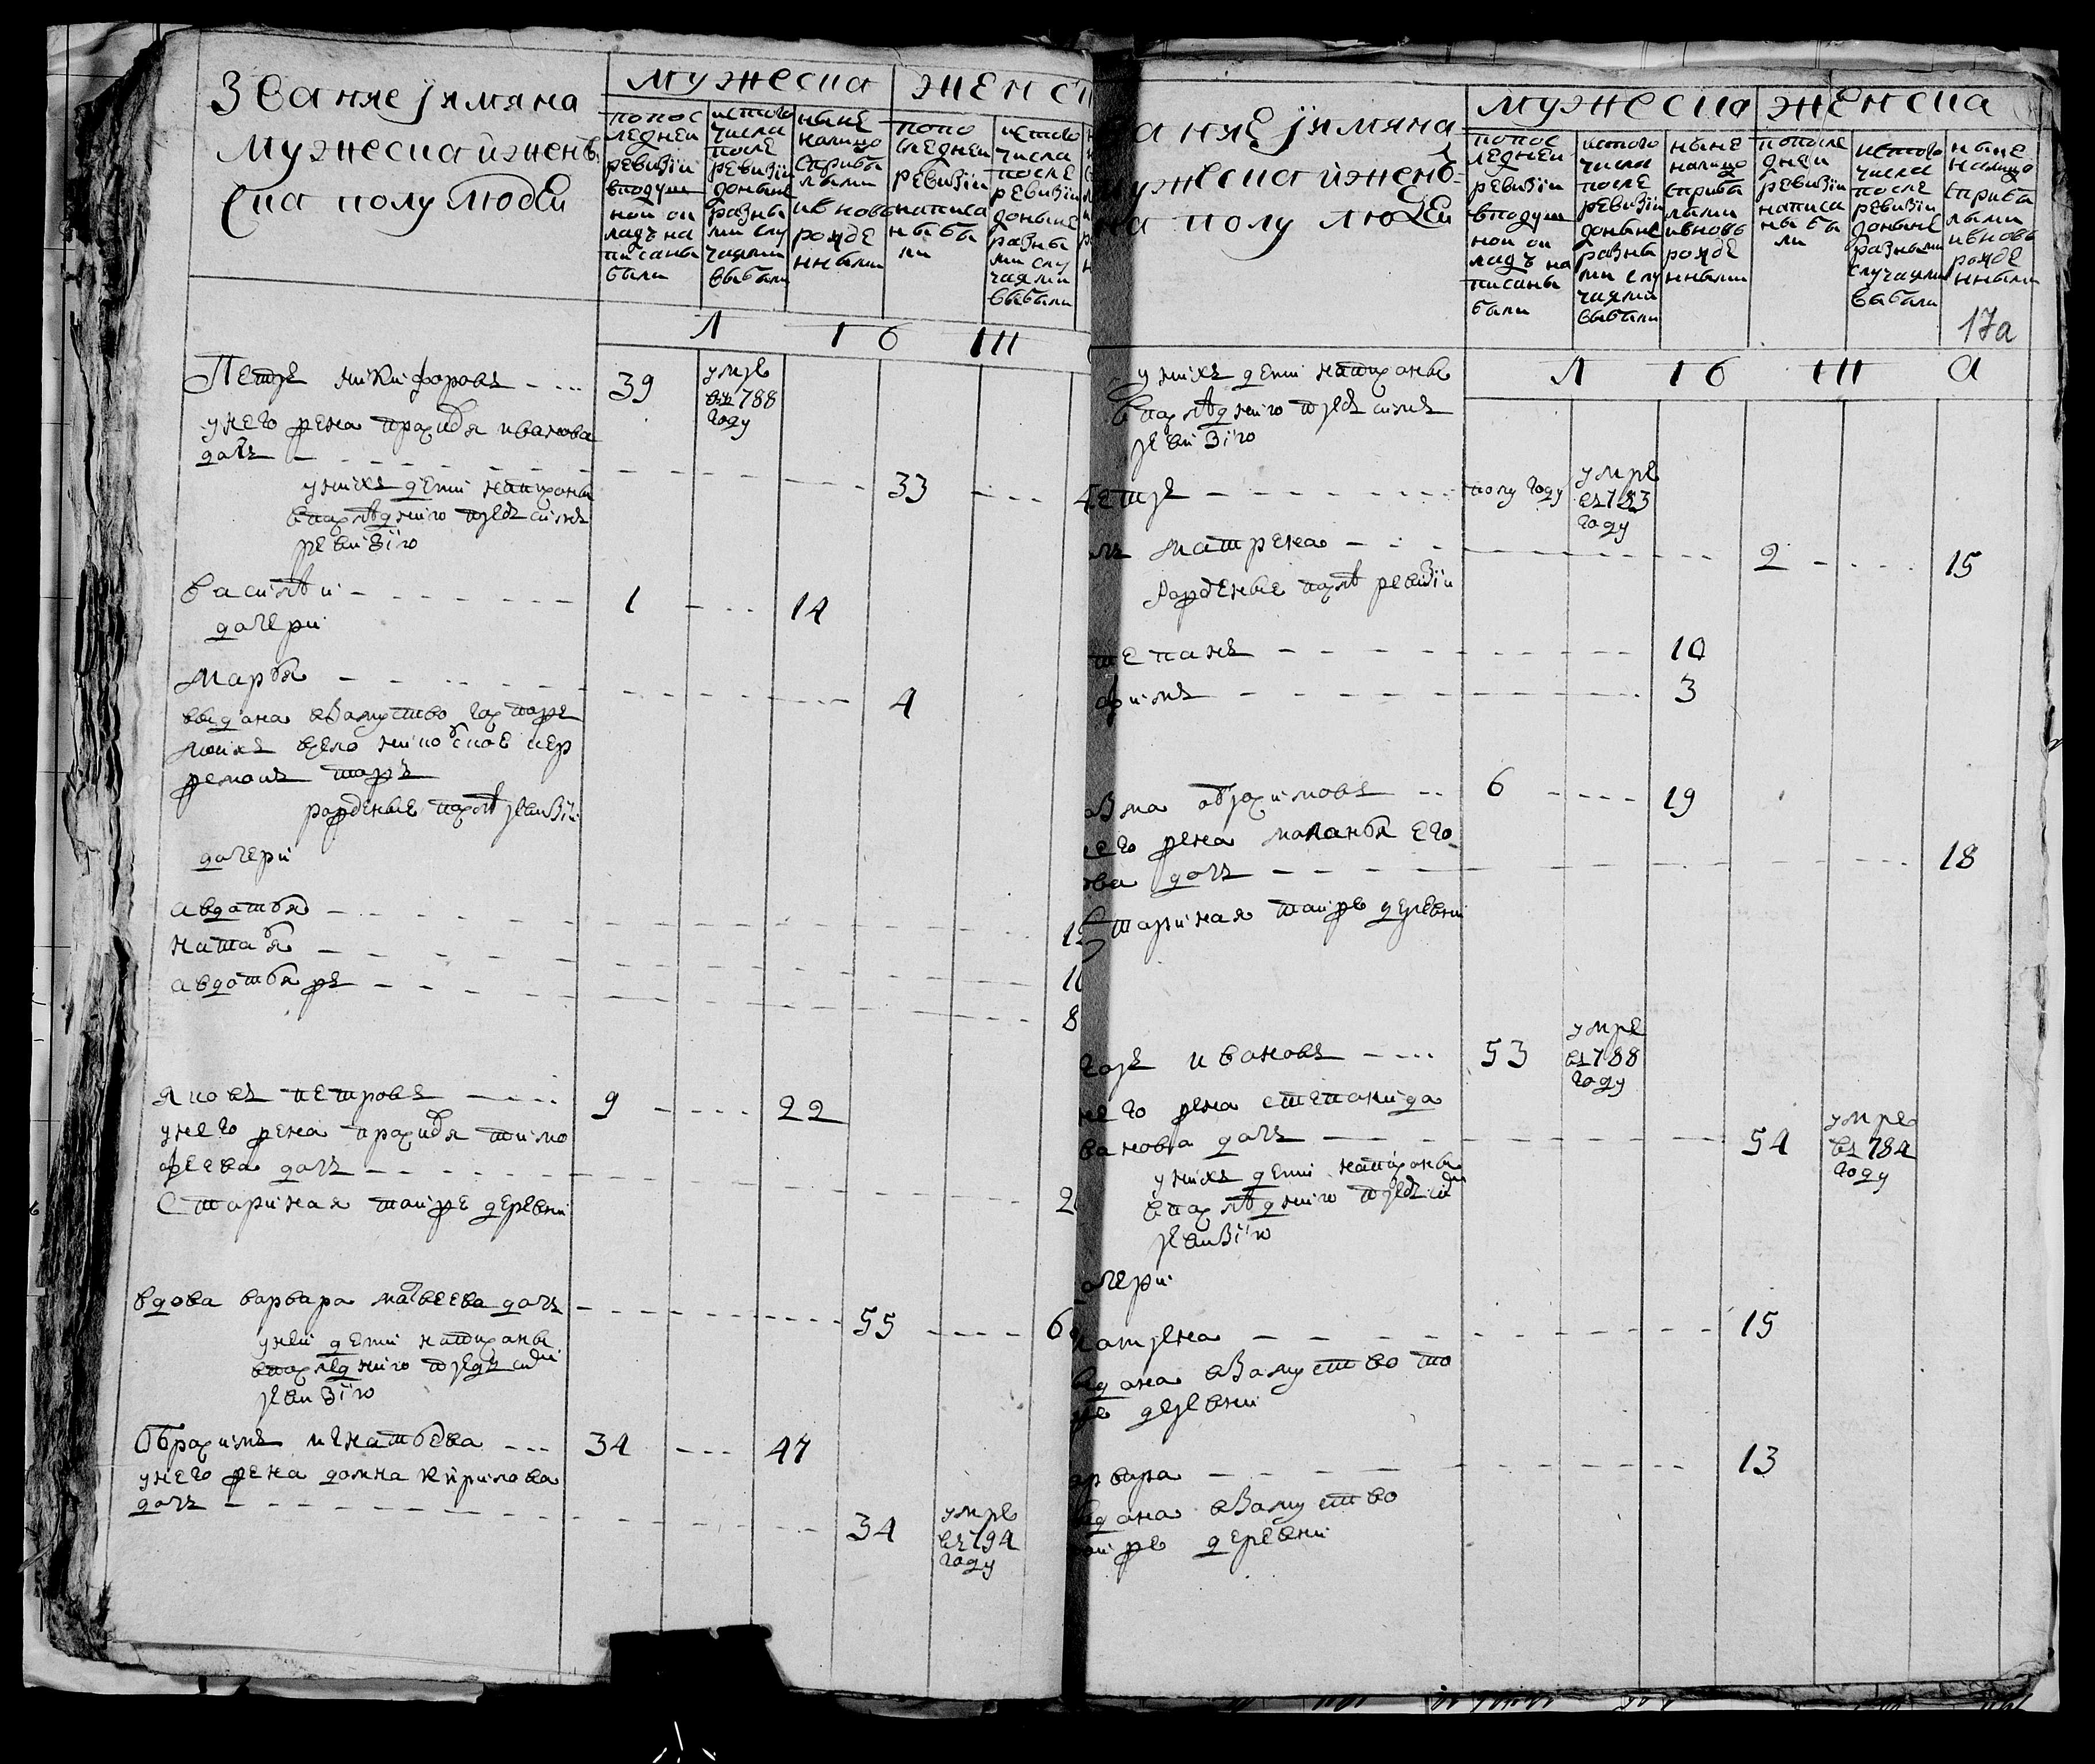 Звание јимяна
мужеска иженъ
ска полу людеи
мужеска
женс
попос
леднеи
ревизіи
вподуш
нои ок
ладъ на
писаны
были
истого
числа
после
ревизіи
доныне
разны
ми слу
чаями
выбыли
ныне
налицо
сприбы
лыми
ивновь
рожде
нными
попо
следнеи
ревизіи
написа
ны бы
ли
истого
числа
после
ревизіи
доныне
разны
ми слу
чаями
выбыли
Л І б ІІІ
Петръ никифоровъ 39 умре въ 788 году
унего жена прасковя иванова
дочь 33
унихъ дети написаны
впоследнюю предъ симъ
ревизію
василеи 1 14
дочери
марья 4
выдана взамуство
рожденые после ревизіи
дочери
авдотья
наталья
авдотья же 8
яковъ петровъ 9 22
унего жена прасковя тимо
феева дочь
старинная тоиже деревни
вдова варвара матвеева дочь 55
унеи дети написаны
впоследнюю предъ сеи
ревизію
Абрасимъ игнатьева 34 47
унего жена домна кирилова
дочь 34 умре въ 794 году
ание јимяна
ужеска иженъ
ка полу людеи
мужеска
женска
попос
леднеи
ревизіи
вподуш
нои ок
ладъ на
писаны
были
истого
числа
после
ревизіи
доныне
разны
ми слу
чаями
выбыли
ныне
налицо
сприбы
лыми
ивновь
рожде
нными
попосле
днеи
ревизіи
написа
ны бы
ли
истого
числа
после
ревизіи
доныне
разными
случаями
выбыли
ныне
налицо
сприбы
лыми
ивновь
рожде
нными
17а
Л І б ІІІ а
унихъ дети написаны
впоследнюю предъ симъ
ревизію
етръ полу году умре въ 783 году
матрена 2 15
Рожденые после ревизіи
тепанъ 10
фимъ 3
озма абрасимовъ 6 19
его жена маланья его
ова дочь 18
старинная тоиже деревни
горъ ивановъ 53 умре въ 788 году
него жена степанида
вановна дочь 54 умре въ 784 году
унихъ дети написаны
впоследнюю предъ сеи
ревизію
очери
матрена 15
ыдана взамуство то
же деревни
арвара 13
ыдана взамуство
тоиже деревни